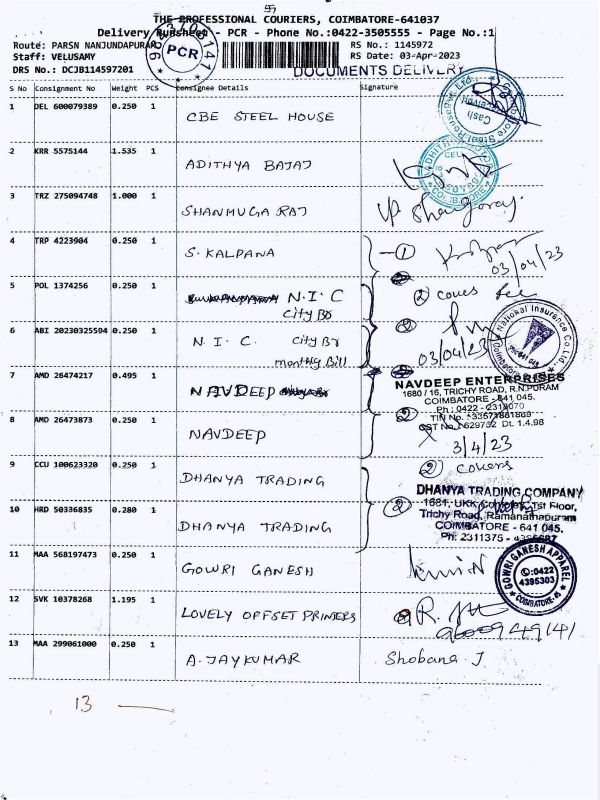 卐
THE PROFESSIONAL COURIERS, COIMBATORE-641037
Delivery Runsheet - PCR - Phone No.:0422-3505555 - Page No.:1
Route: PARSN NANJUNDAPURAM
RS No.: 1145972
Staff: VELUSAMY
PCR
RS Date: 03-Apr-2023
DRS No.: DCJB114597201
DOCUMENTS DELIVERY
S No Consignment No Weight PCS Consignee Details Signature
1 DEL 600079389 0.250 1 CBE STEEL HOUSE
Cash
2 KRR 5575144 1.535 1 ADITHYA BAJAJ
COIMBATORE
3 TRZ 275094748 1.000 1 SHANMUGA RAJ
4 TRP 4223904 0.250 1 S. KALPANA 1
03/04/23
5 POL 1374256 0.250 1 N.I.C 2 coues
City Bo
6 ABI 20230325594 0.250 1 N. I. C. City Br 2
monthly Bill 03/04/23
National Insurance Co.Ltd.,
7 AMD 26474217 0.495 1 NAVDEEP
NAVDEEP ENTERPRISES
1680 / 16, TRICHY ROAD, R.N.PURAM
COIMBATORE - 641 045.
8 AMD 26473873 0.250 1 NAVDEEP 2
CST No. 629732 Dt. 1.4.98
3/4/23
9 CCU 100623320 0.250 1 DHANYA TRADING 2 covers
DHANYA TRADING COMPANY
10 HRD 50336835 0.280 1 DHANYA TRADING 2
1681, UKK Complex, 1st Floor,
Trichy Road, Ramanathapuram
COIMBATORE - 641 045.
11 MAA 568197473 0.250 1 GOWRI GANESH
GOWRI GANESH APPAREL
✆:0422
4395303
COIMBATORE-45
12 SVK 10378268 1.195 1 LOVELY OFFSET PRINTERS
9600949141
13 MAA 299061000 0.250 1 A. JAYKUMAR Shobana J
13